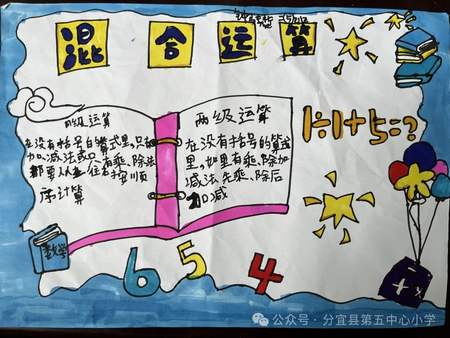 混合运算
同级运算
在没有括号的算式里,只有
加减法或只有乘、除法
都要从左往右按顺
序计算
两级运算
在没有括号的算式
里,如果有乘、除加
减法,先乘、除后
加减
1÷1+5=?
数学
6 5 4
公众号·分宜县第五中心小学